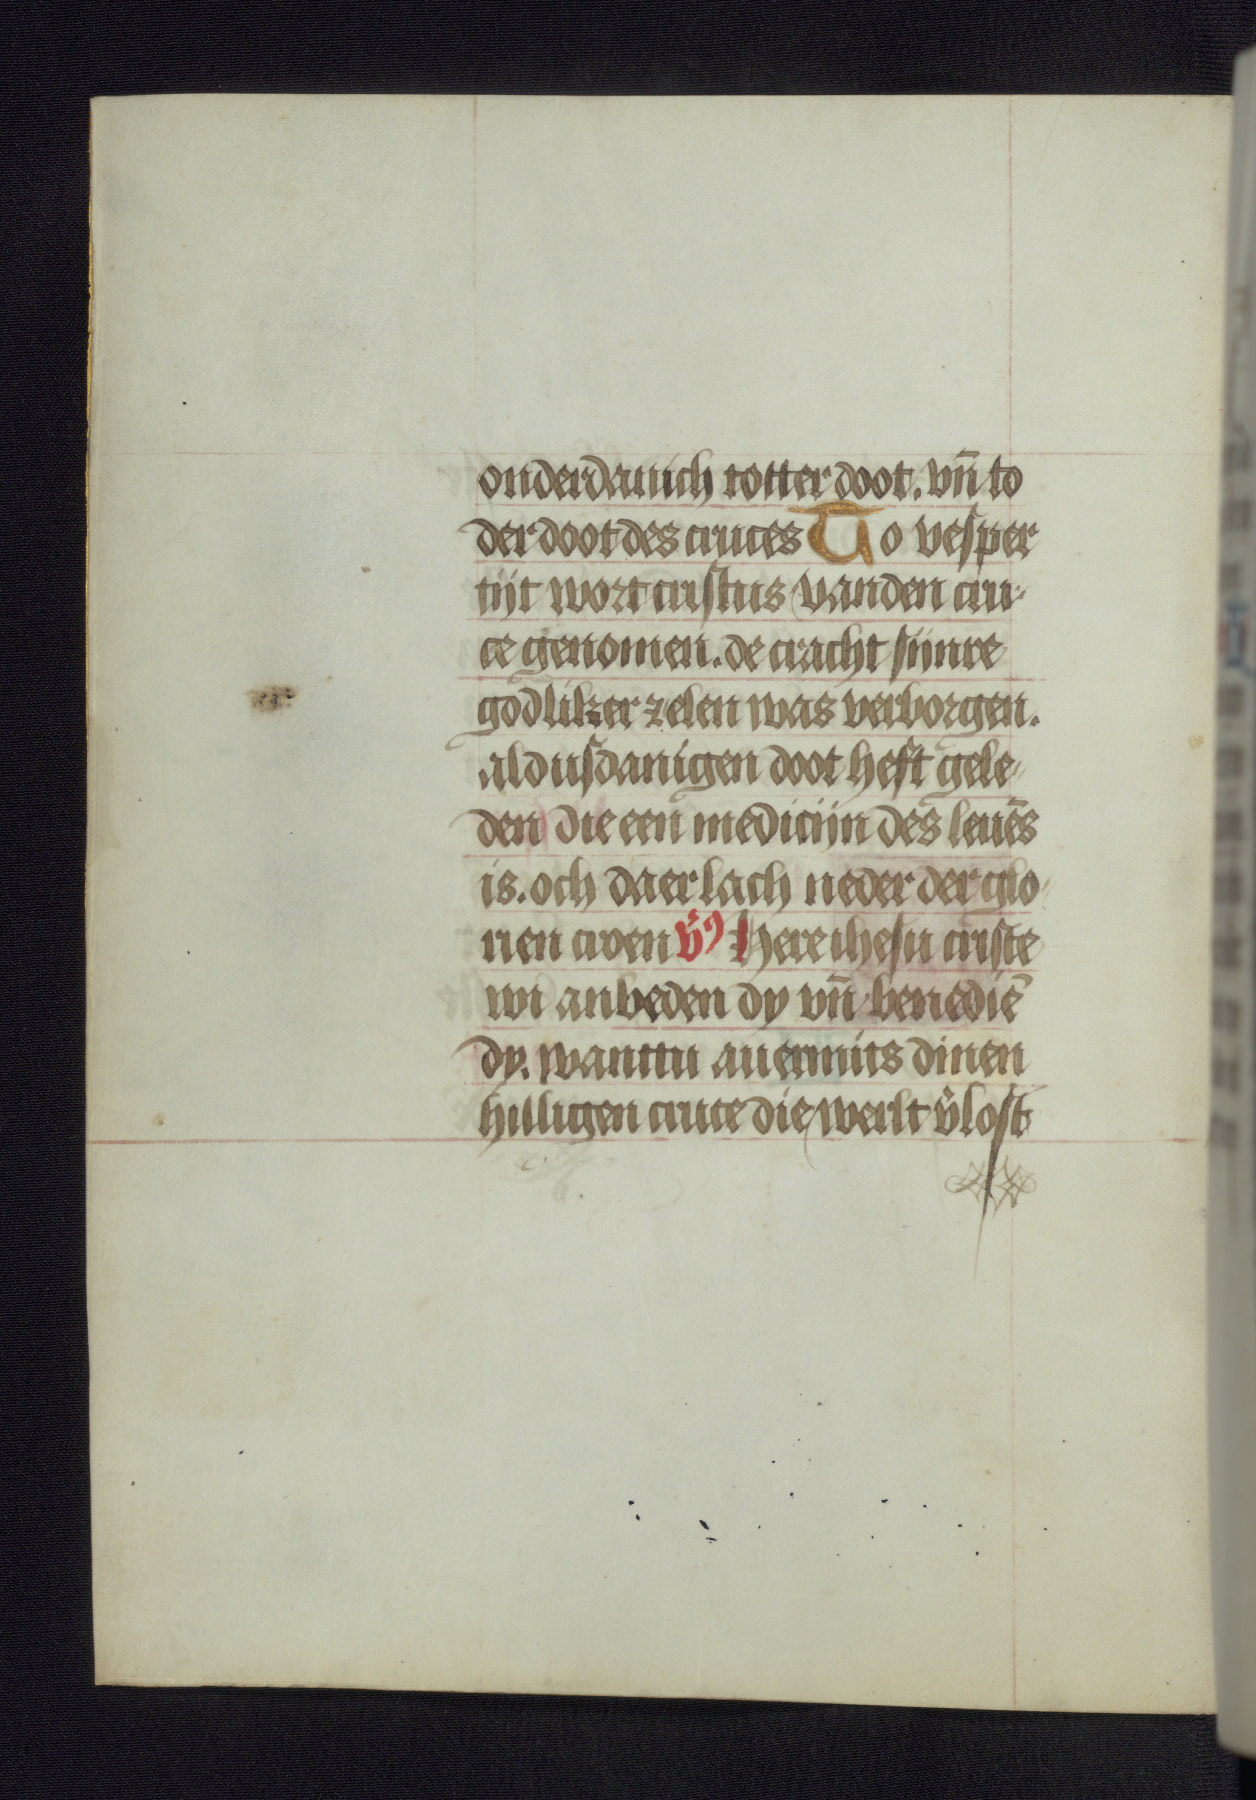 onderdanich totter doot. vn̄ to
der doot des cruces To vesper
tijt wort cristus vanden cru-
ce genomen. de cracht sijnre
godliker zelen was verborgen.
aldusdanigen doot heft gele-
den die een medicijn des leuēs
is. och daer lach neder der glo-
rien croen v̄ꝰ Here ihesu criste
wi anbeden dy vn̄ benediē
dy. wanttu auermits dinen
hilligen cruce die werlt v̄lost